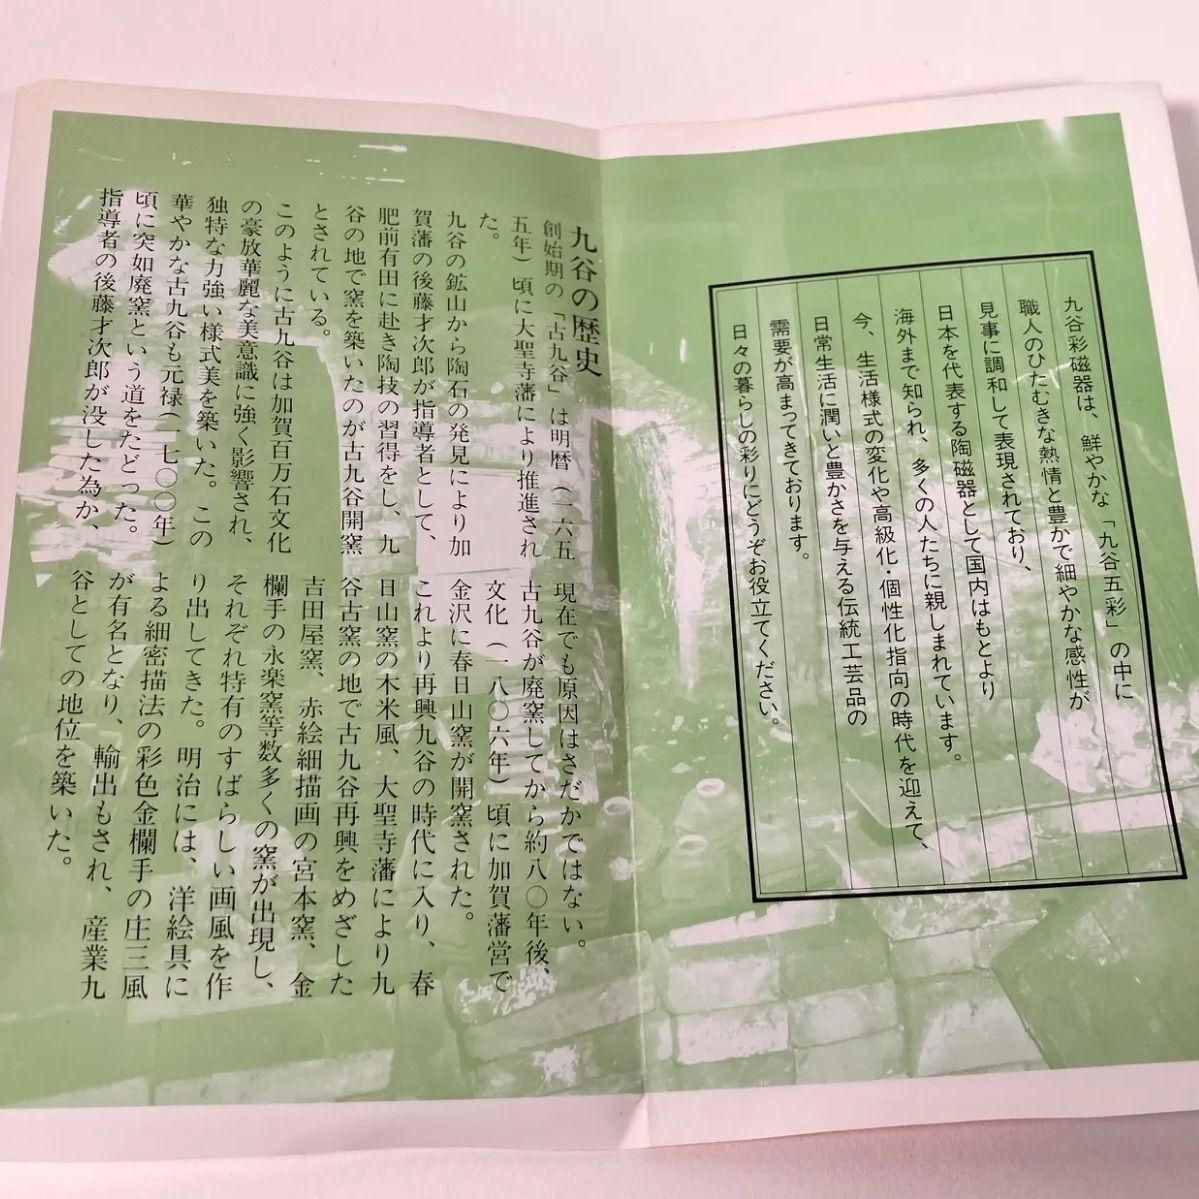 九谷彩磁器は、鮮やかな「九谷五彩」の中に
職人のひたむきな熱情と豊かで細やかな感性が
見事に調和して表現されており、
日本を代表する陶磁器として国内はもとより
海外まで知られ、多くの人たちに親しまれています。
今、生活様式の変化や高級化・個性化指向の時代を迎えて、
日常生活に潤いと豊かさを与える伝統工芸品の
需要が高まってきております。
日々の暮らしの彩りにどうぞお役立てください。
九谷の歴史
創始期の「古九谷」は明暦(一六五
五年)頃に大聖寺藩により推進され
た。
九谷の鉱山から陶石の発見により加
賀藩の後藤才次郎が指導者として、
肥前有田に赴き陶技の習得をし、九
谷の地で窯を築いたのが古九谷開窯
とされている。
このように古九谷は加賀百万石文化
の豪放華麗な美意識に強く影響され、
独特な力強い様式美を築いた。この
華やかな古九谷も元禄(一七〇〇年)
頃に突如廃窯という道をたどった。
指導者の後藤才次郎が没した為か、
現在でも原因はさだかではない。
古九谷が廃窯してから約八〇年後、
文化(一八〇六年)頃に加賀藩営で
金沢に春日山窯が開窯された。
これより再興九谷の時代に入り、春
日山窯の木米風、大聖寺藩により九
谷古窯の地で古九谷再興をめざした
吉田屋窯、赤絵細描画の宮本窯、金
欄手の永楽窯等数多くの窯が出現し、
それぞれ特有のすばらしい画風を作
り出してきた。明治には、洋絵具に
よる細密描法の彩色金欄手の庄三風
が有名となり、輸出もされ、産業九
谷としての地位を築いた。